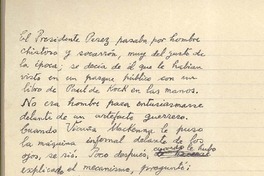 El Presidente Perez pasaba por hombre
chistoso y socarrón, muy del gusto de
la época; se decía de él que le habían
visto en un parque público con un
libro de Paul de Kock en las manos.
No era hombre para entusiasmarse
delante de un artefacto guerrero.
Cuando Vicuña Mackenna le puso
la máquina infernal delante de los
ojos, se rió. Poco después, cuando le hubo
explicado el mecanismo, preguntó: